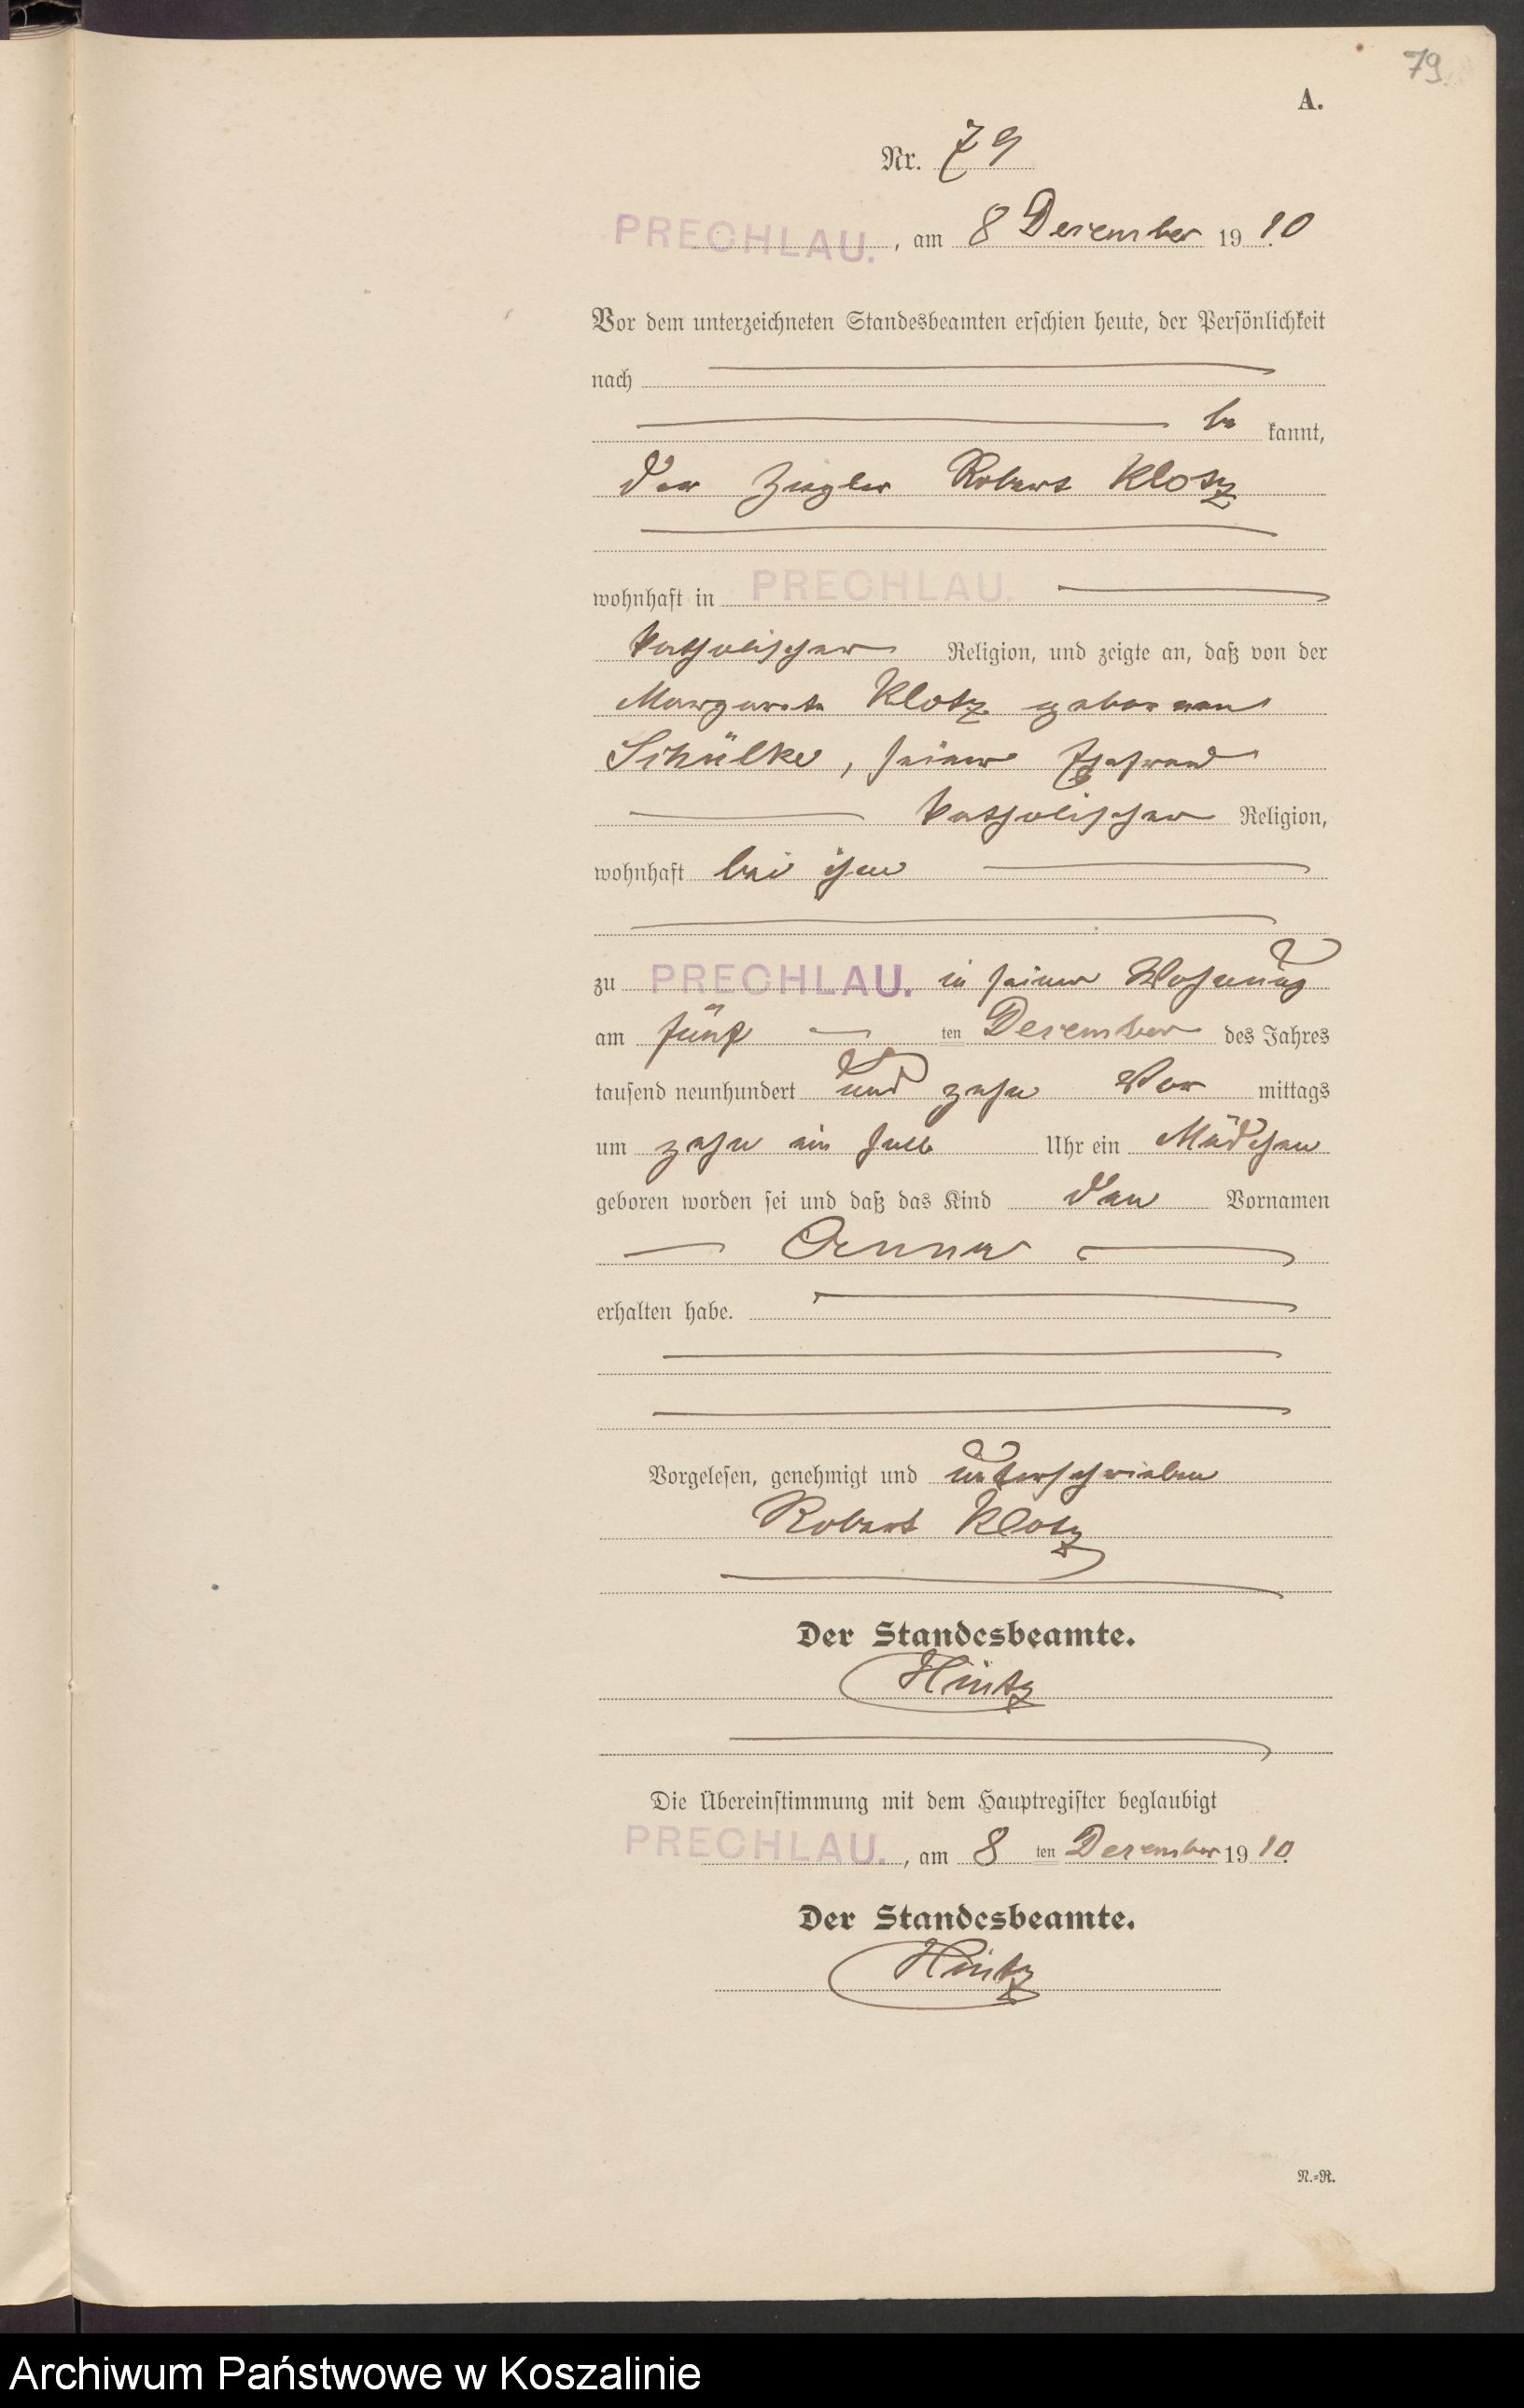 79
A.
Nr. 79
PRECHLAU. , am 8 Dezember 19 10.
Vor dem unterzeichneten Standesbeamten erschien heute, der Persönlichkeit
nach
be kannt,
der Ziegler Robert Klotz
wohnhaft in PRECHLAU.
katholischer Religion, und zeigte an, daß von der
Margarete Klotz geborenen
Schülke, seiner Ehefrau
katholischer Religion,
wohnhaft bei ihm
zu PRECHLAU. in seiner Wohnung
am fünf ten Dezember des Jahres
tausend neunhundert und zehn Vor mittags
um zehn ein halb Uhr ein Mädchen
geboren worden sei und daß das Kind den Vornamen
Anna
erhalten habe.
Vorgelesen, genehmigt und unterschrieben
Robert Klotz
Der Standesbeamte.
Hintz
Die Übereinstimmung mit dem Hauptregister beglaubigt
PRECHLAU. , am 8 ten Dezember 19 10.
Der Standesbeamte.
Hintz
N.-R.
Archiwum Państwowe w Koszalinie